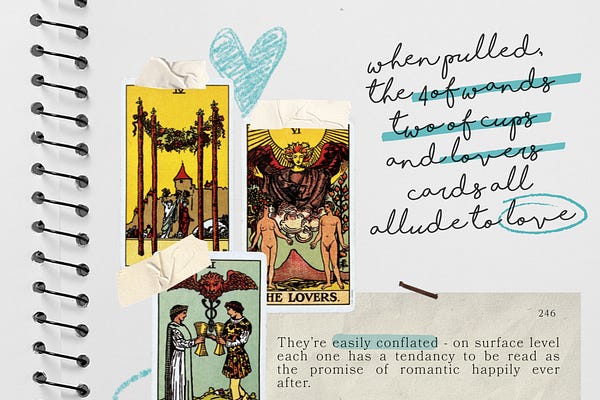 when pulled,
the 4 of wands
two of cups
and lovers
cards all
allude to love
IV
VI
THE LOVERS.
II
246
They're easily conflated - on surface level
each one has a tendency to be read as
the promise of romantic happily ever
after.